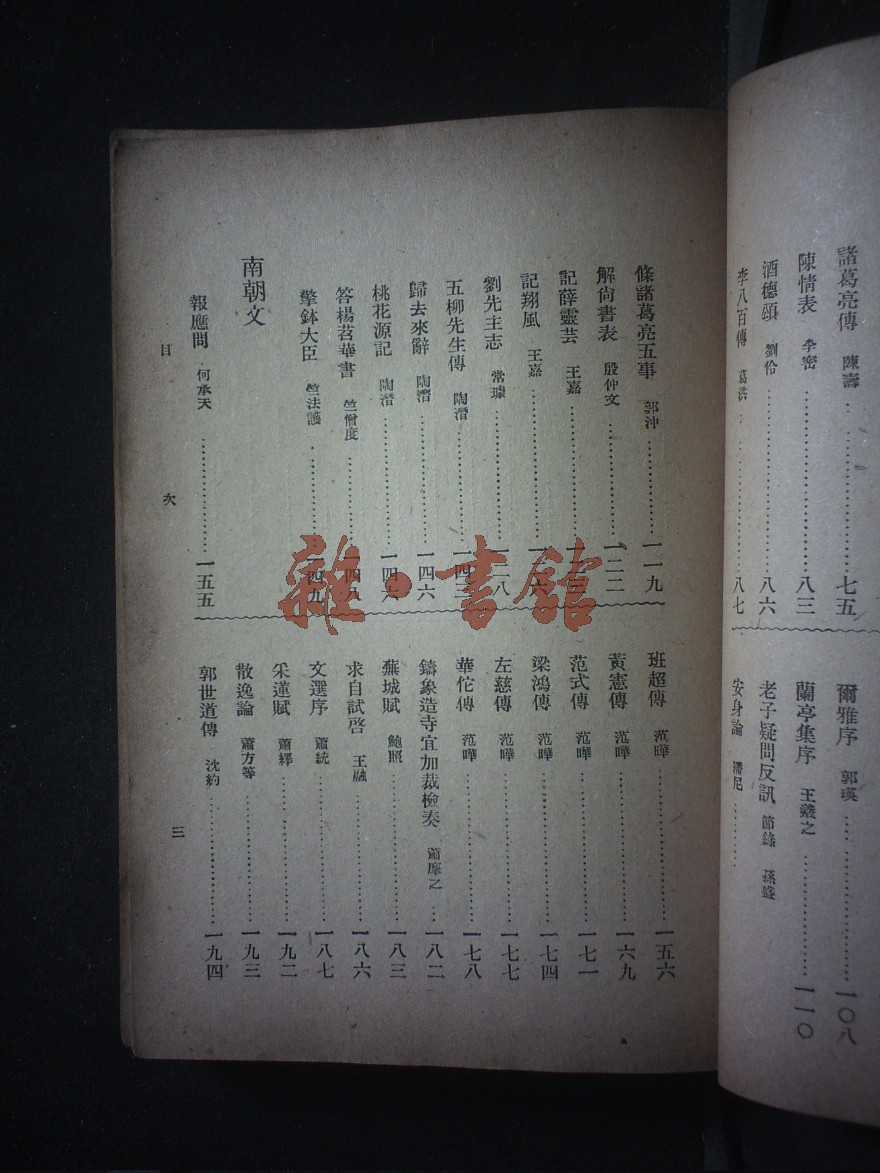 諸葛亮傳 陳壽 七五
陳情表 李密 八三
酒德頌 劉伶 八六
李八百傳 葛洪 八七
爾雅序 郭瑛 一〇八
蘭亭集序 王羲之 一一〇
老子疑問反訊 節錄 孫盛
安身論 潘尼
條諸葛亮五事 郭沖 一一九
解尙書表 殷仲文 一二二
記薛靈芸 王嘉
記翔風 王嘉
劉先主志 常璩
五柳先生傳 陶潛 一四三
歸去來辭 陶潛 一四六
桃花源記 陶潛 一四六
答楊苕華書 竺僧度 一四八
擎鉢大臣 竺法護 一四九
南朝文
報應問 何承天 一五五
班超傳 范曄 一五六
黃憲傳 范曄 一六九
范式傳 范曄 一七一
梁鴻傳 范曄 一七四
左慈傳 范曄 一七七
華佗傳 范曄 一七八
鑄象造寺宜加裁檢奏 蕭摩之 一八二
蕪城賦 鮑照 一八三
求自試啓 王融 一八六
文選序 蕭統 一八七
采蓮賦 蕭繹 一九二
散逸論 蕭方等 一九三
郭世道傳 沈約 一九四
目 次 三
雜·書館